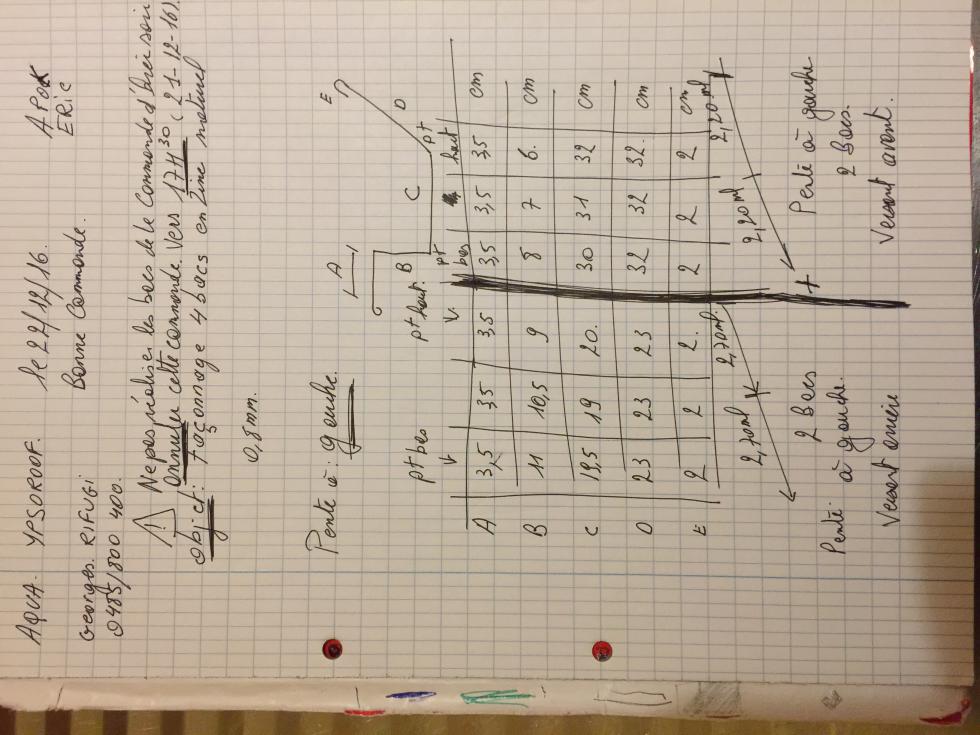 AQUA. YPSOROOF. le 22/12/16. APOK
Georges. RIFUGI Bonne Commande. ERIC
0485/800 400.
⚠ Ne pas réaliser les bacs de la Commande d'hier soir
Annuler cette commande. Vers 17H30 (21-12-16).
Objet: façonnage 4 bacs en zinc naturel
0,8mm.
A
E
Pente à: gauche.
B C D
pt bas pt haut. pt bas pt haut
A 3,5 3,5 3,5 3,5 3,5 3,5 cm
B 11 10,5 9 8 7 6. cm
C 19,5 19 20. 30 31 32 cm
D 23 23 23 32 32 32. cm
E 2 2 2. 2 2 2 cm
2,70ml 2,70ml. 2,20ml 2,20ml
+
Pente: 2 Bacs Pente à gauche
à gauche. 2 Bacs.
Versant arrière Versant avant.